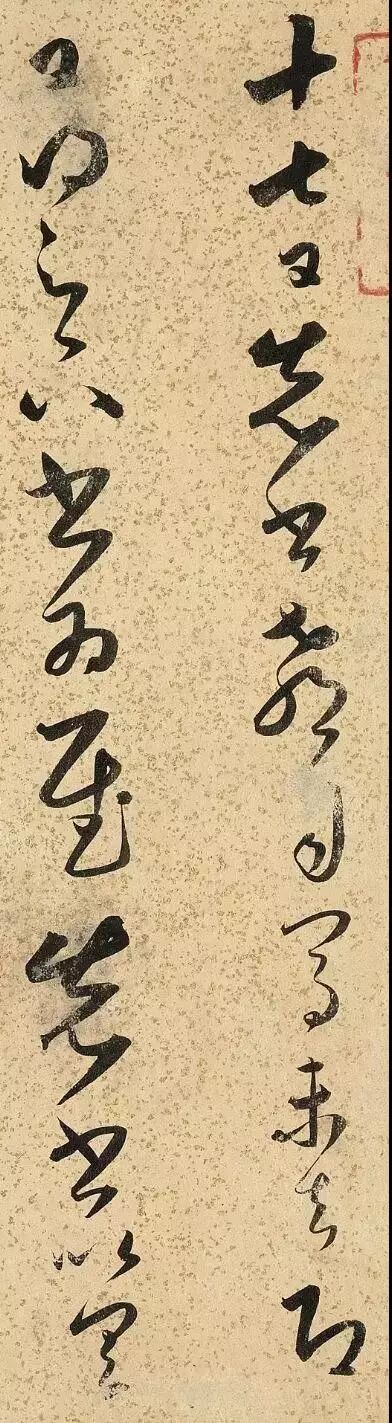 十七日先書郗司馬未去即
日得足下書為慰先書以具